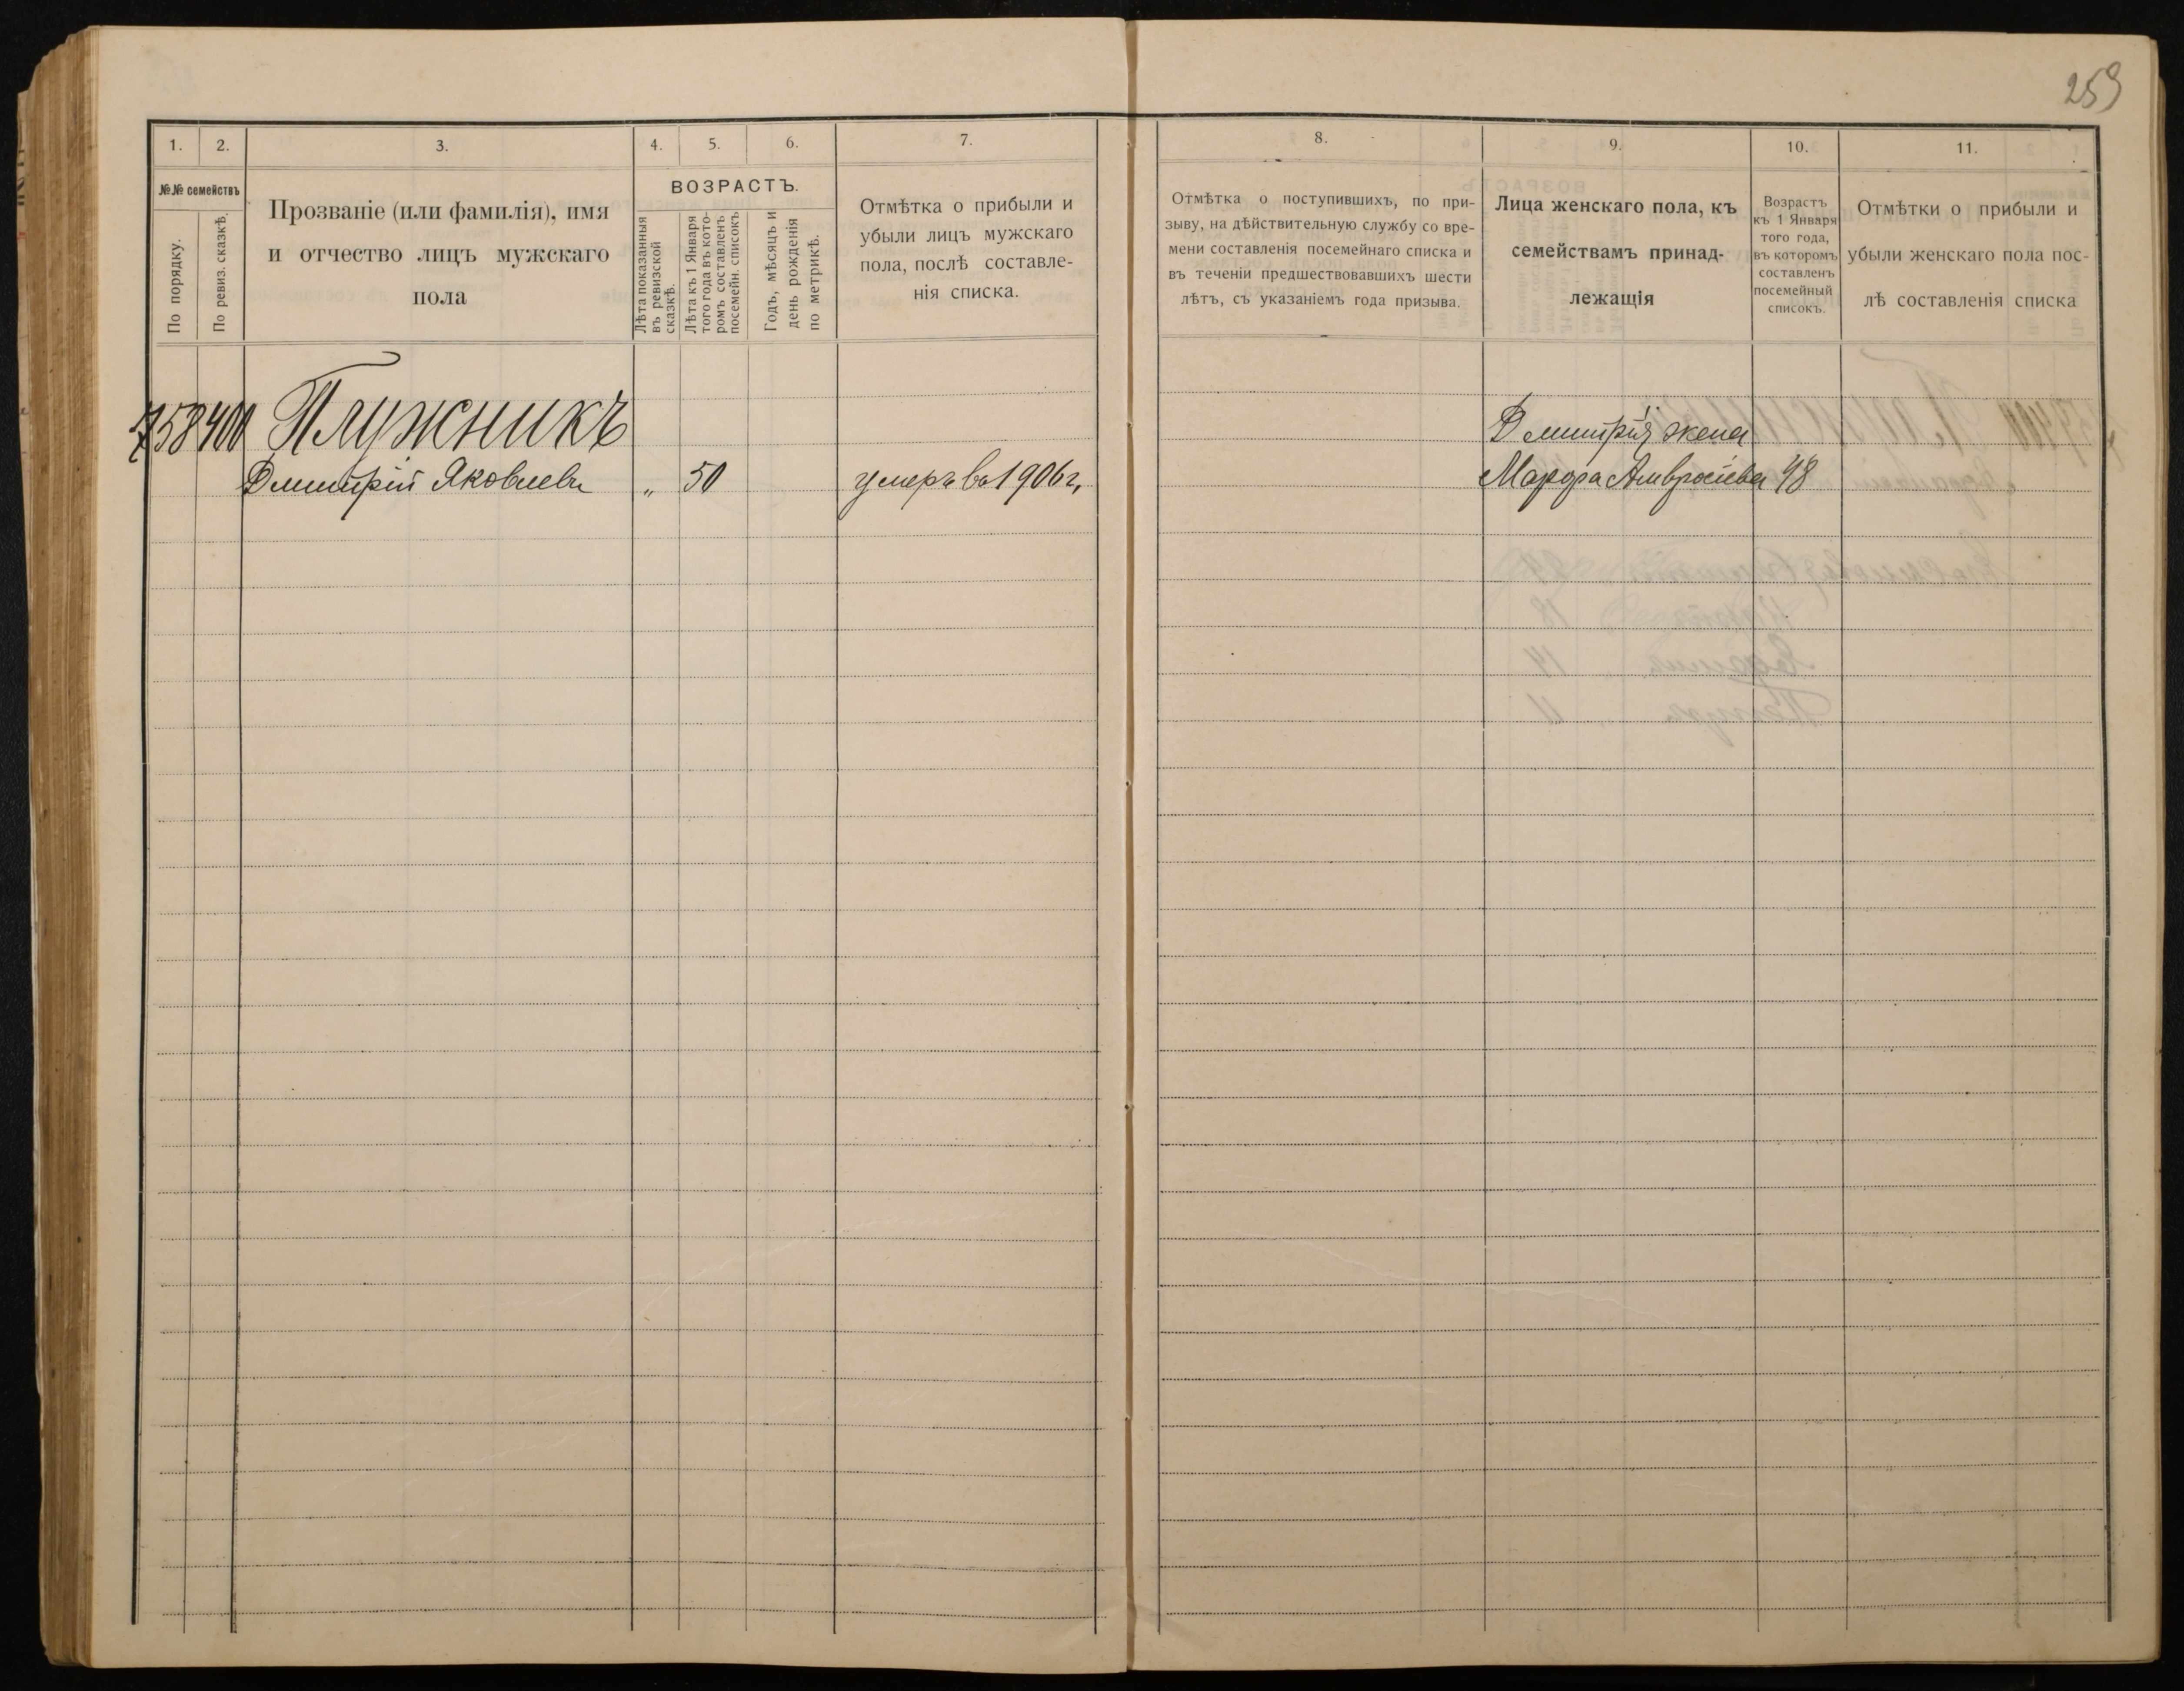 259
1.
2.
3.
4.
5.
6.
7.
№№ семействъ
По порядку.
По ревиз. сказкѣ.
Прозваніе (или фамилія), имя
и отчество лицъ мужскаго
пола
ВОЗРАСТЪ.
Лѣта показанныя
въ ревизской
сказкѣ.
Лѣта къ 1 Января
того года въ кото-
ромъ составленъ
посемейн. списокъ
Годъ, мѣсяцъ и
день рожденія
по метрикѣ.
Отмѣтка о прибыли и
убыли лицъ мужскаго
пола, послѣ составле-
нія списка.
758 400 Плужникъ
Дмитрій Яковлевъ „ 50 умеръ въ 1906 г,
8.
9.
10.
11.
Отмѣтка о поступившихъ, по при-
зыву, на дѣйствительную службу со вре-
мени составленія посемейнаго списка и
въ теченіи предшествовавшихъ шести
лѣтъ, съ указаніемъ года призыва.
Лица женскаго пола, къ
семействамъ принад-
лежащія
Возрастъ
къ 1 Января
того года,
въ которомъ
составленъ
посемейный
списокъ.
Отмѣтки о прибыли и
убыли женскаго пола пос-
лѣ составленія списка
Дмитрія жена
Марфа Амвросіева 48